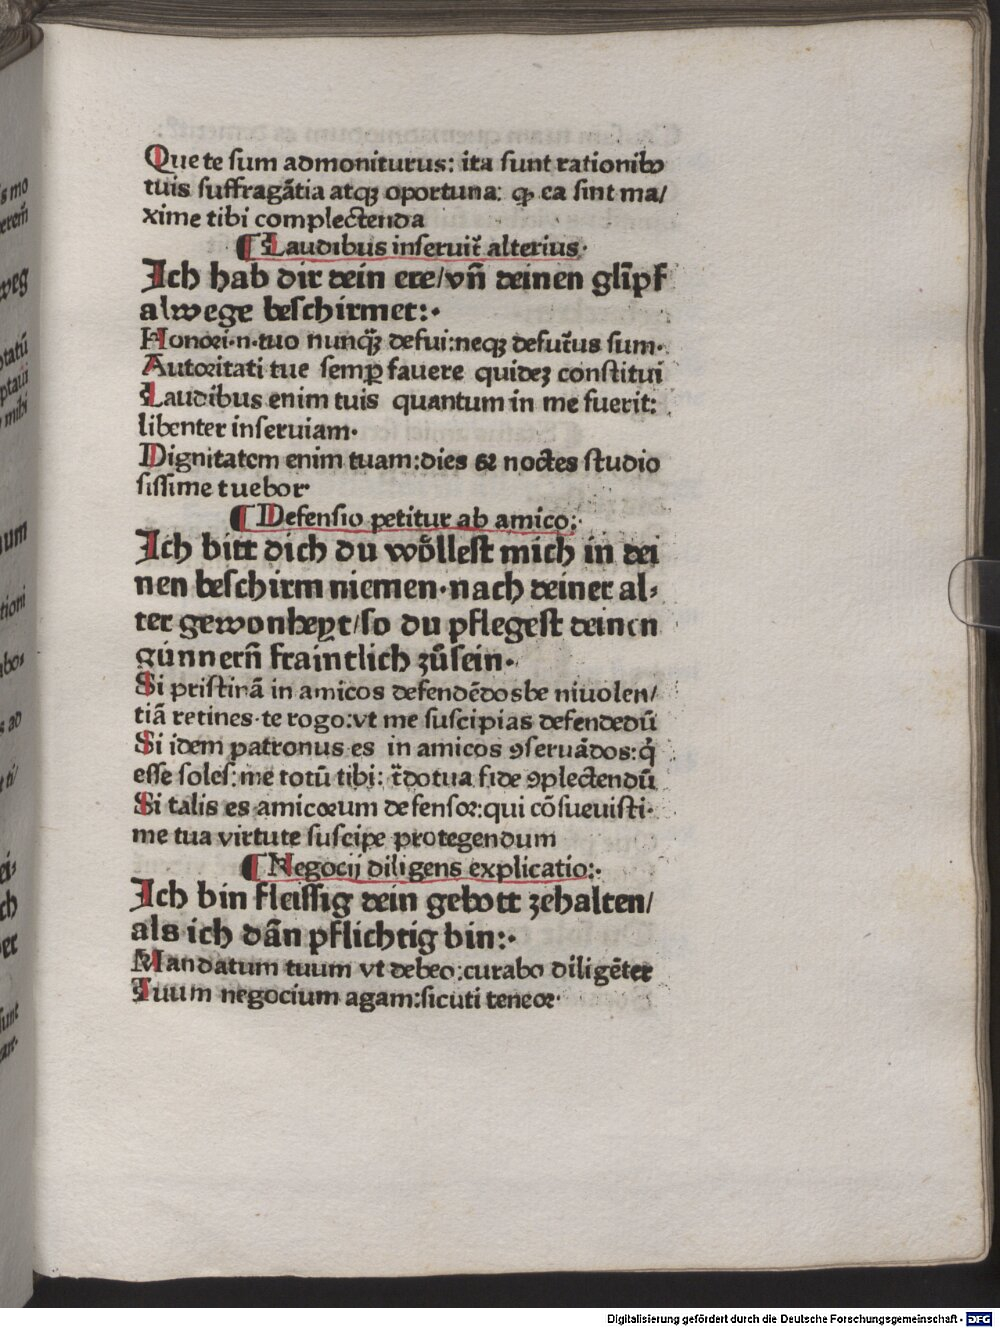 Que te sum admoniturus: ita sunt rationibꝰ
tuis suffragãtia atqꝫ oportuna: ꝙ ea sint ma/
xime tibi complectenda
¶ Laudibus inseruit̃ alterius·
Ich hab dir dein ere/vñ deinen glĩpf
alwege beschirmet:·
Honori·n·tuo nunqꝫ̃ defui:neqꝫ defut̃us sum·
Autoritati tue semꝑ fauere quideꝫ constitui
Laudibus enim tuis quantum in me fuerit:
libenter inseruiam·
Dignitatem enim tuam:dies et noctes studio
sissime tuebor·
¶ Defensio petitur ab amico:·
Ich bitt dich du wöllest mich in dei
nen beschirm niemen·nach deiner al⸗
ter gewonheyt/so du pflegest deinen
günnerñ fraintlich zůsein·
Si pristinã in amicos defendẽdos be niuolen/
tiã retines·te rogo:vt me suscipias defendẽdũ
Si idem patronus es in amicos ꝯseruãdos:q̇
esse soles:me totũ tibi: t̃do tua fide ꝯplectendũ
Si talis es amicoꝛum defensoꝛ:qui cõsueuisti·
me tua virtute suscipe protegendum
¶ Negocij diligens explicatio:·
Ich bin fleissig dein gebott zehalten/
als ich dãn pflichtig bin:·
Mandatum tuum vt debeo:curabo diligẽter
Tuum negocium agam:sicuti teneoꝛ·
Digitalisierung gefördert durch die Deutsche Forschungsgemeinschaft - DFG